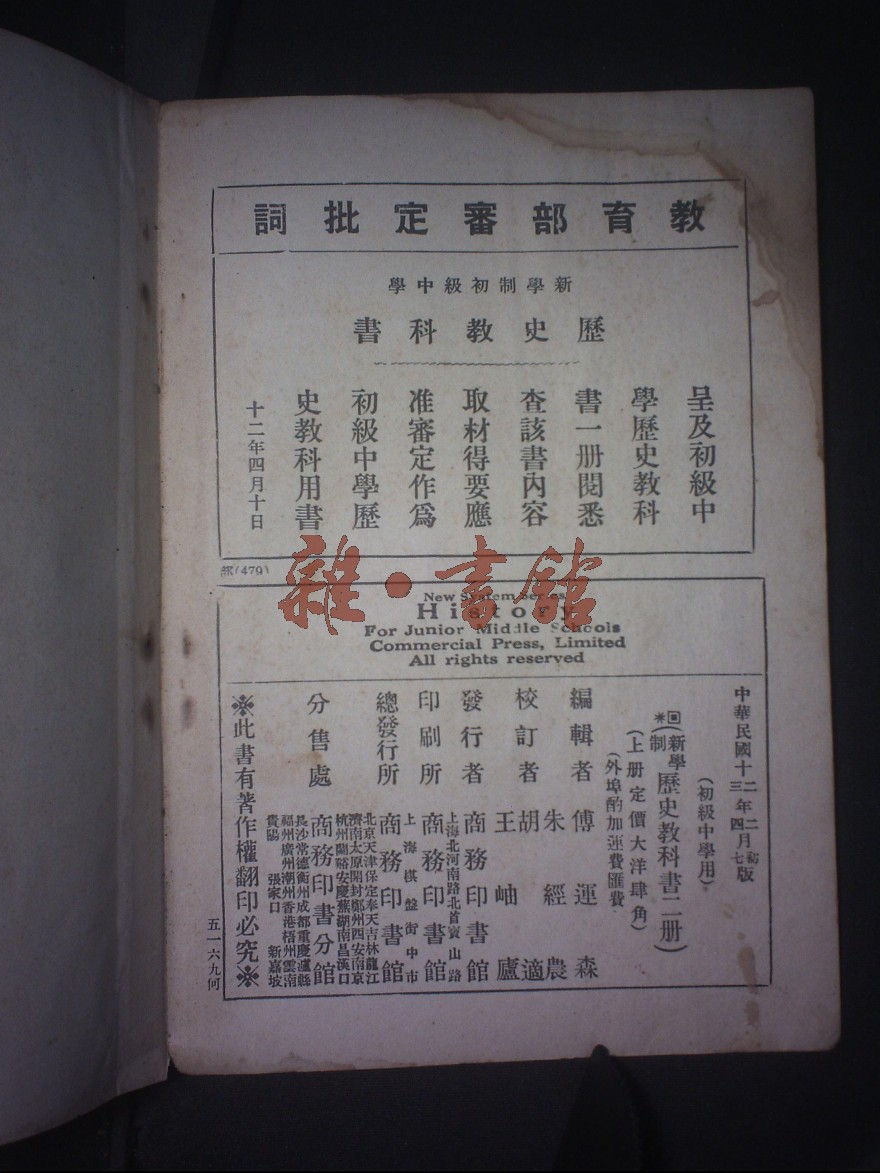 教育部審定批詞
新學制初級中學
歷史教科書
呈及初級中
學歷史教科
書一册閱悉
查該書內容
取材得要應
准審定作爲
初級中學歷
史教科用書
十二年四月十日
部(479)
雜·書館
New System Series
History
For Junior Middle Schools
Commercial Press, Limited
All rights reserved
中華民國十二年二月初版
十三年四月七版
(初級中學用)
(新學制)歷史教科書二册
(上册定價大洋肆角)
(外埠酌加運費匯費)
編輯者 傅運森
朱經農
校訂者 胡適
王岫廬
發行者 商務印書館
上海北河南路北首寶山路
印刷所 商務印書館
上海棋盤街中市
總發行所 商務印書館
北京天津保定奉天吉林龍江
濟南太原開封鄭州西安南京
杭州蘭谿安慶蕪湖南昌漢口
分售處 商務印書分館
長沙常德衡州成都重慶瀘縣
福州廣州潮州香港梧州雲南
貴陽 張家口 新嘉坡
※此書有著作權翻印必究※
五一六九何